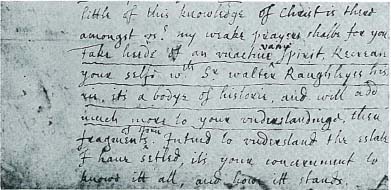 little of this knowledge of Christ is there
amongst vs! my weake prayers shalbe for you
Take heede of an vnactiue vany spirit, Recreate
your selfe wth Sr Walter Raughleyes
its a bodye of historie, and will add
much more to your vnderstandinge, then
fragments of storie. Intend to vnderstand the estate
I have setled, its your concernment to
knowe itt all, and how itt stands,